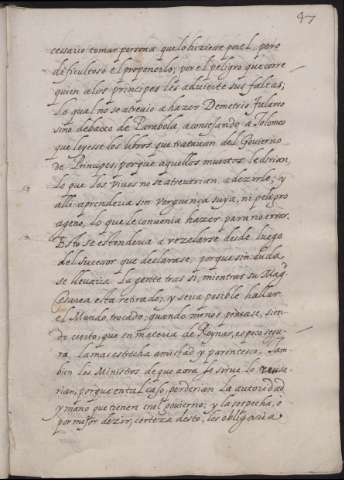 47
cessario tomar persona que lo hiziesse por el, pero
dificultoso el proponerlo; por el peligro que corre
quien a los principes les advierte sus faltas;
Lo qual no se atrevio a hazer Demetrio
sino debaxo de Parabola, aconsejando a Tolomeo
que leyesse los libros, que tratavan del Govierno
de Principes, porque aquellos muertos le dirian,
lo que los vivos no se atreverian a dezirle; y
alli aprenderia sin verguença suya, ni peligro
ageno, lo que le convenia hazer para no errar.
Esto se estendeua a rezelarse desde luego
del sucesor que declarase, porque sin duda
se llevaria la gente tras si, mientras su Mag
Cesarea esta retirado; y seria posible hallar
el Mundo trocado, quando menos pensase, sien
do cierto, que en materia de Reynar, es poco segu
ra, la mas estrecha amistad y parentesco, Tam
bien los Ministros de que aora se sirve lo
rian, porque en tal caso, perderian la autoridad
y mano que tienen en el govierno; y la sospecha, o
por mejor dezir, certeza desto, les obligaria